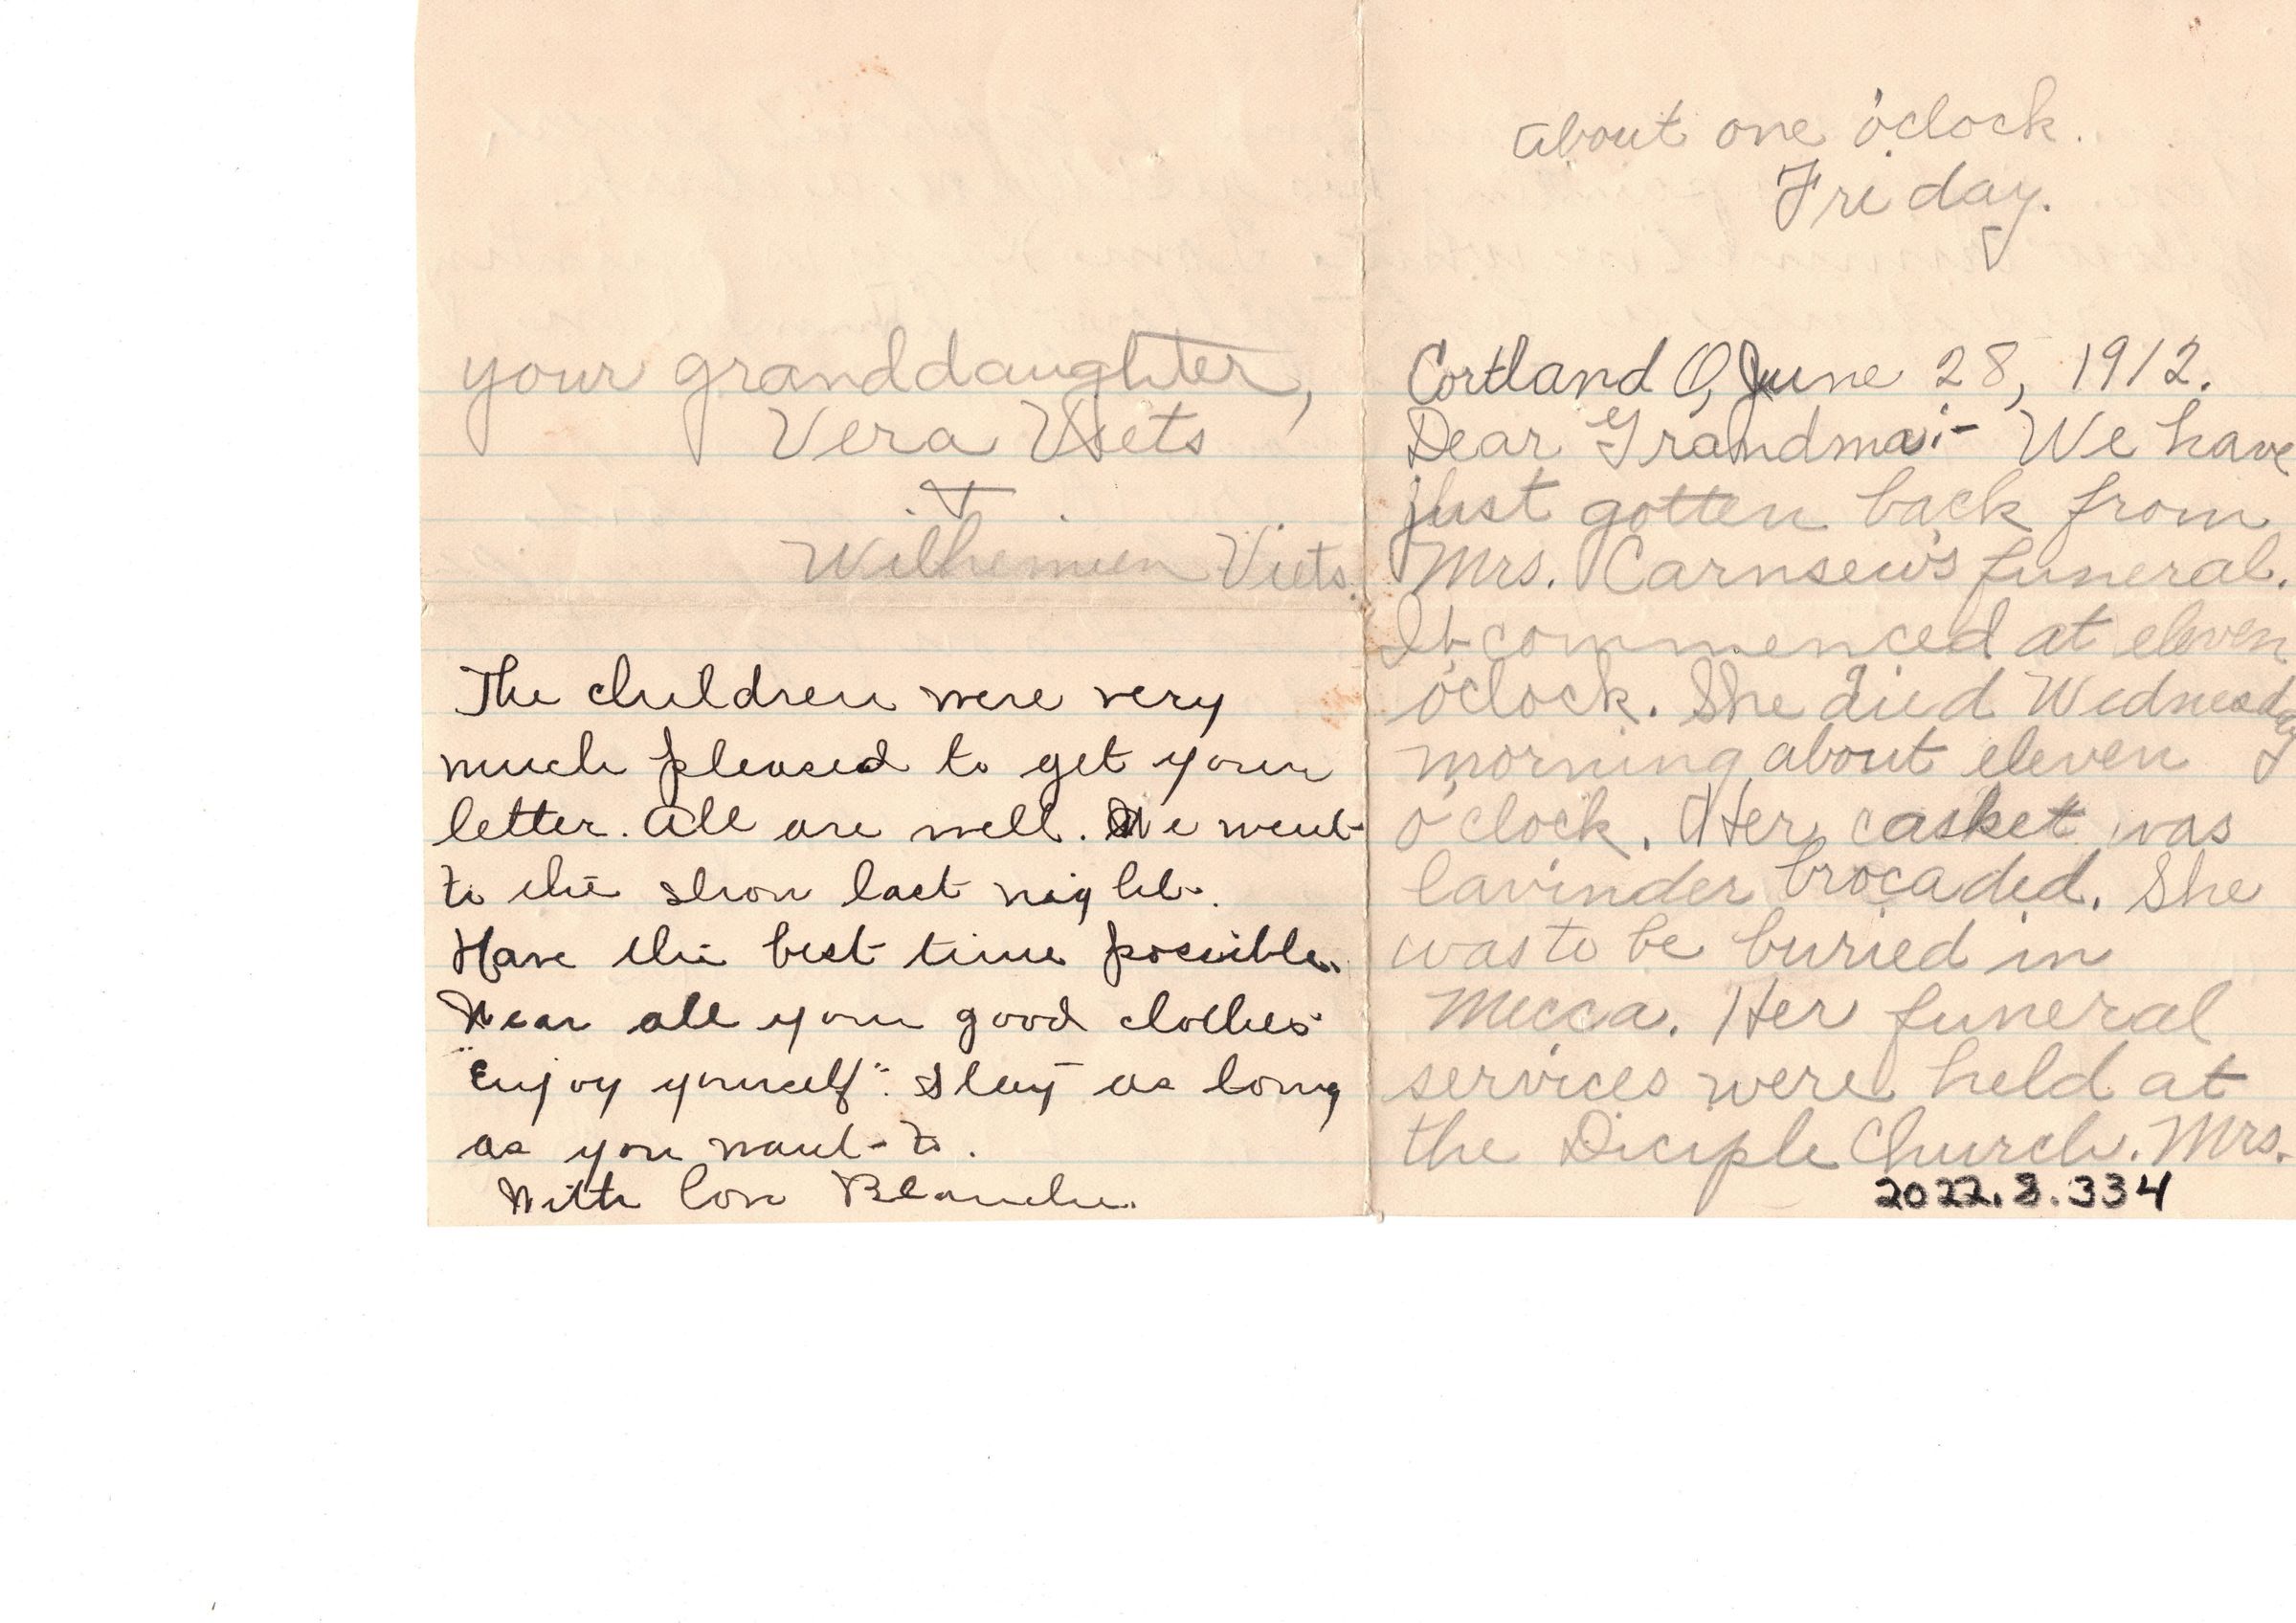 about one o'clock.
Friday.
Cortland O, June 28, 1912.
Dear Grandma:- We have
just gotten back from
Mrs. Carnsew's funeral.
It commenced at eleven
o'clock. She died Wednesday
morning about eleven
o'clock. Her casket was
lavinder brocaded. She
was to be buried in
Mecca. Her funeral
services were held at
the Diciple Church. Mrs.
2022.8.334
your granddaughter,
Vera Viets
+
Wilhemien Viets.
The children were very
much pleased to get your
letter. All are well. We went
to the show last night.
Have the best time possible.
Wear all your good clothes
"Enjoy yourself". Stay as long
as you want to.
With love Blanche.